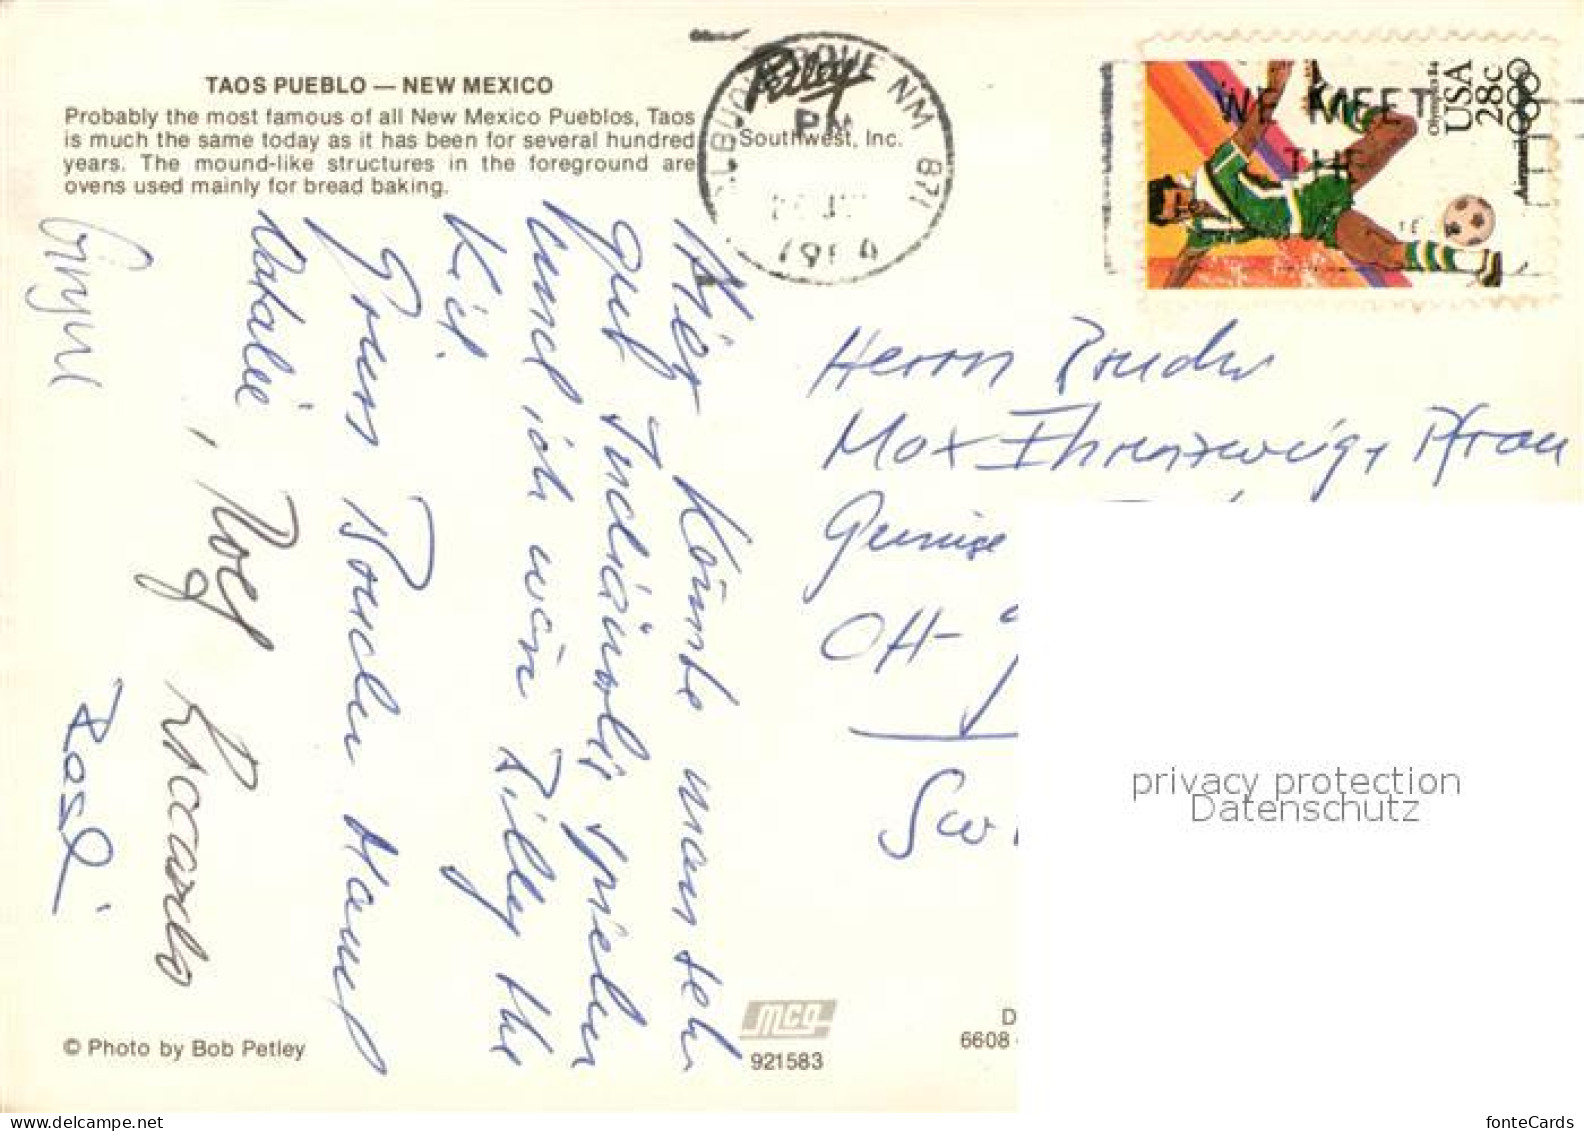 TAOS PUEBLO — NEW MEXICO
Probably the most famous of all New Mexico Pueblos, Taos
is much the same today as it has been for several hundred
years. The mound-like structures in the foreground are
ovens used mainly for bread baking.
Petley
Southwest, Inc.
ALBUQUERQUE NM 871
PM
WE MEET
THE
Olympics 84
USA
28c
Airmail
Hier könnte man sehr
gut Indianerlis spielen
und ich wär Billy the
Kid.
Gruss Bruder Hansp
Natalie
, Roy Riccardo
Rösli
Herrn Bruder
Max Ehrenzweig, Pfrau
CH-
Sw
© Photo by Bob Petley
mcg
921583
D
6608
privacy protection
Datenschutz
fonteCards